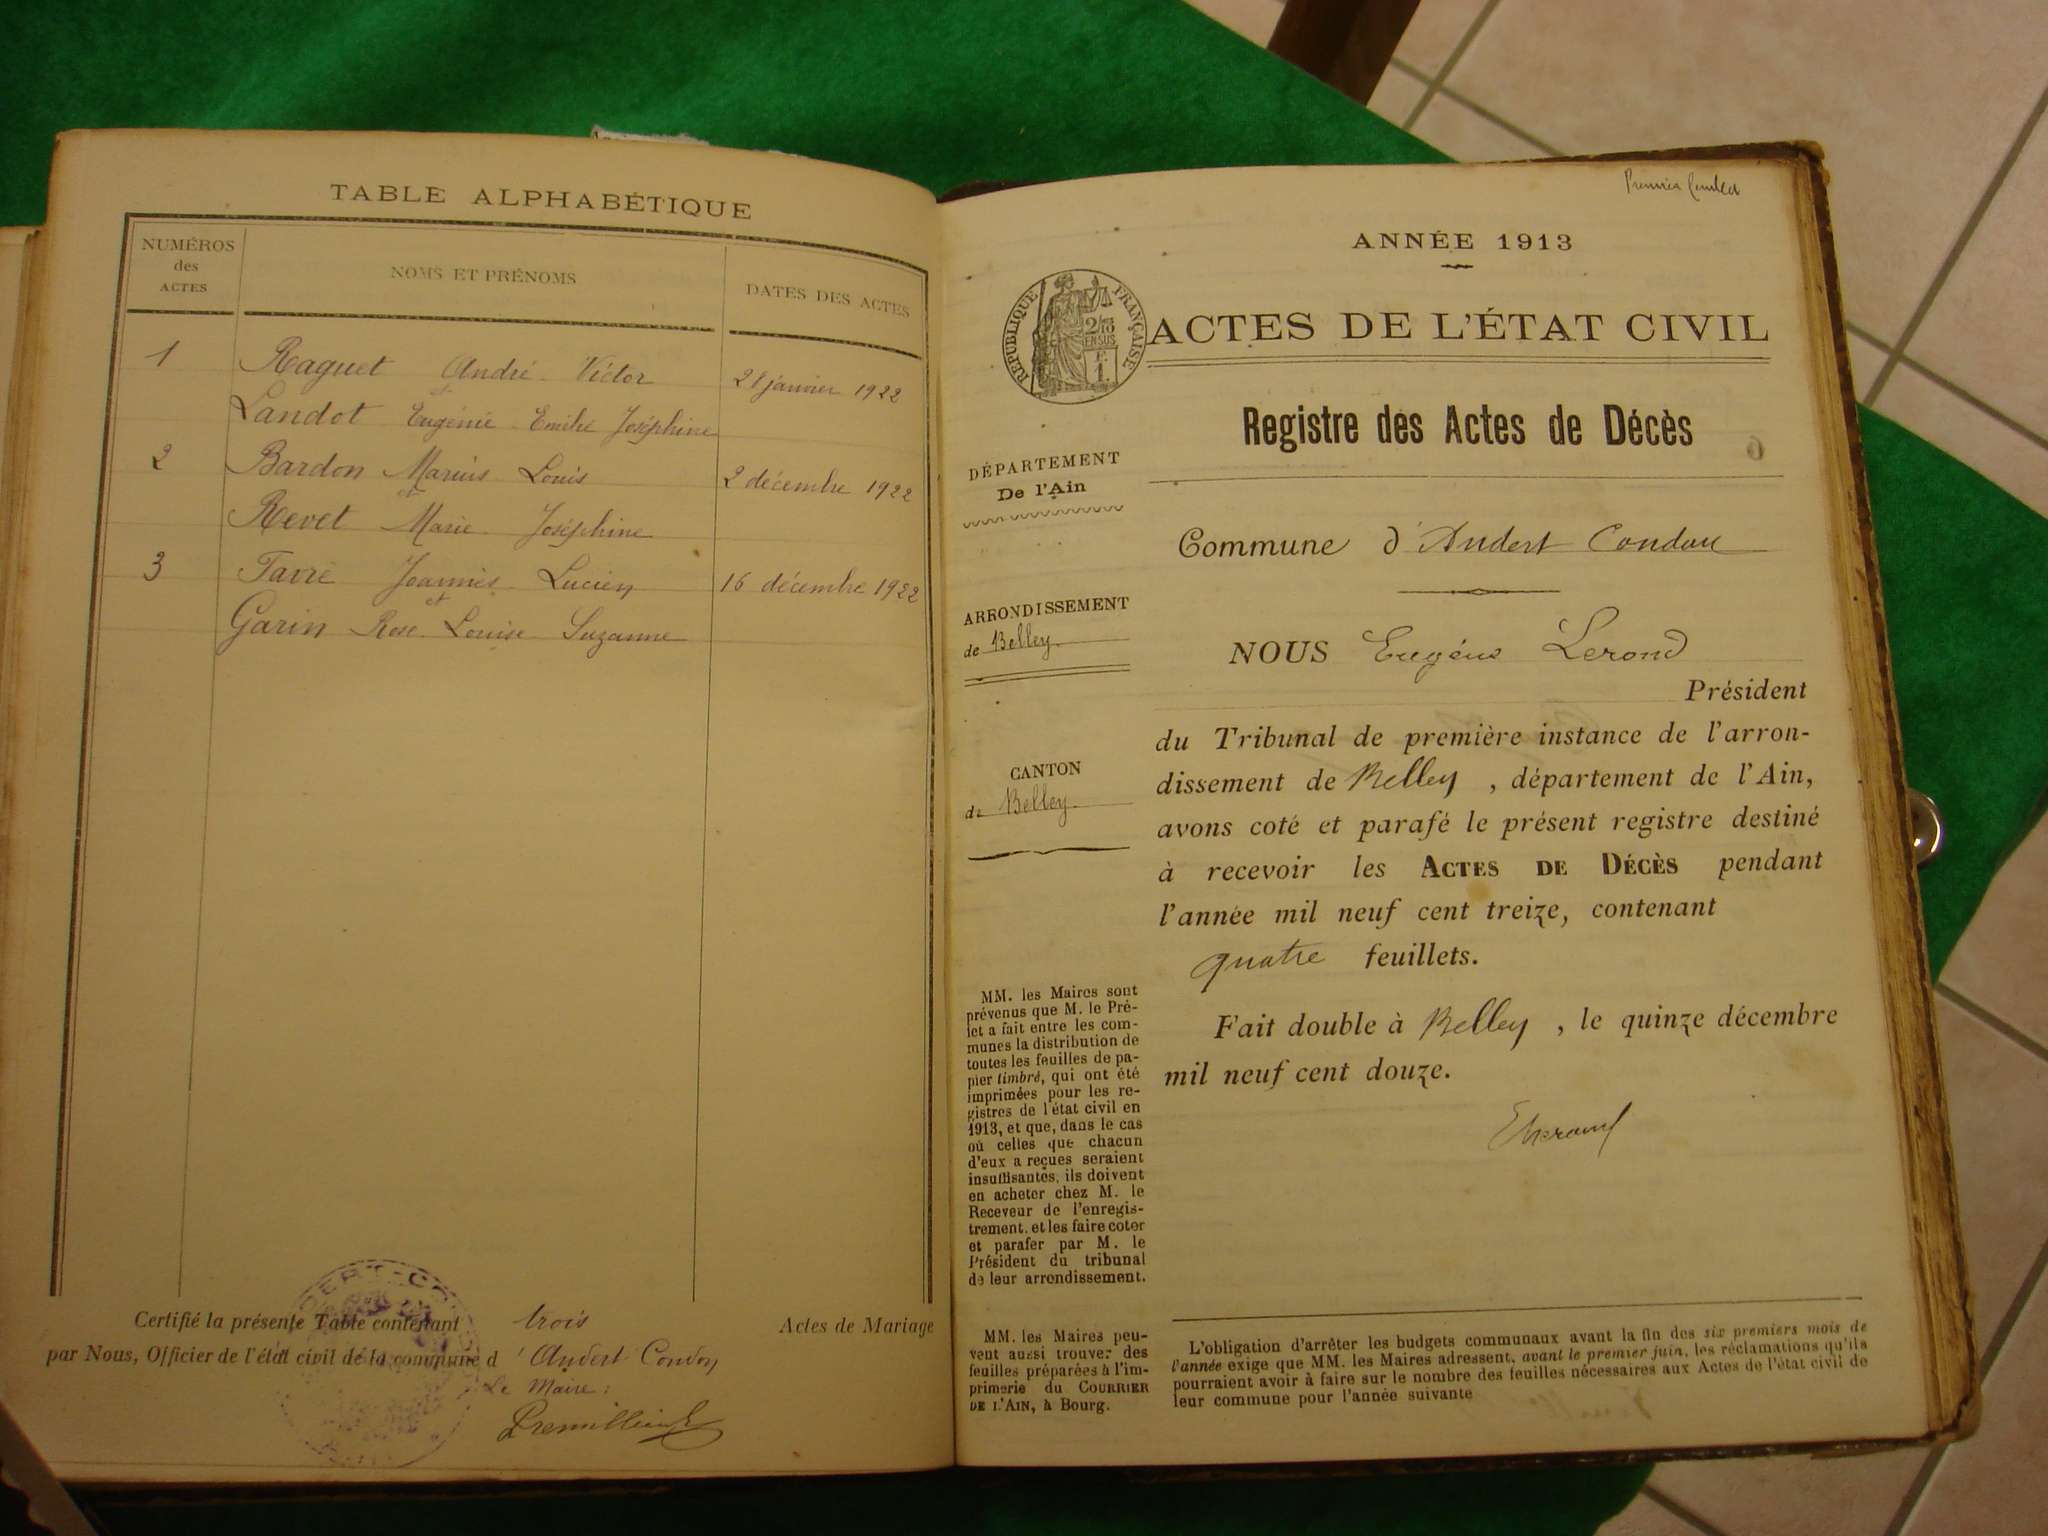 TABLE ALPHABÉTIQUE
NUMÉROS
des
ACTES
NOMS ET PRÉNOMS
DATES DES ACTES
1 Raguet André Victor 28 janvier 1922
et
Landot Eugénie Emilie Joséphine
2 Bardon Marius Louis 2 décembre 1922
et
Revet Marie Joséphine
3 Favre Joannès Lucien 16 décembre 1922
et
Garin Rose Louise Suzanne
Certifié la présente Table contenant trois Actes de Mariage
par Nous, Officier de l'état civil de la commune d'Andert Condon
Le Maire :
Premier
ANNÉE 1913
RÉPUBLIQUE FRANÇAISE
ACTES DE L'ÉTAT CIVIL
Registre des Actes de Décès
DÉPARTEMENT
De l'Ain
Commune d'Andert Condon
ARRONDISSEMENT
de Belley
NOUS Eugène Lerond
Président
du Tribunal de première instance de l'arron-
dissement de Belley, département de l'Ain,
avons coté et parafé le présent registre destiné
à recevoir les ACTES DE DÉCÈS pendant
l'année mil neuf cent treize, contenant
quatre feuillets.
Fait double à Belley, le quinze décembre
mil neuf cent douze.
CANTON
de Belley
MM. les Maires sont
prévenus que M. le Pré-
fet a fait entre les com-
munes la distribution de
toutes les feuilles de pa-
pier timbré, qui ont été
imprimées pour les re-
gistres de l'état civil en
1913, et que, dans le cas
où celles que chacun
d'eux a reçues seraient
insuffisantes, ils doivent
en acheter chez M. le
Receveur de l'enregis-
trement, et les faire coter
et parafer par M. le
Président du tribunal
de leur arrondissement.
MM. les Maires peu-
vent aussi trouver des
feuilles préparées à l'im-
primerie du COURRIER
DE L'AIN, à Bourg.
L'obligation d'arrêter les budgets communaux avant la fin des six premiers mois de
l'année exige que MM. les Maires adressent, avant le premier juin, les réclamations qu'ils
pourraient avoir à faire sur le nombre des feuilles nécessaires aux Actes de l'état civil de
leur commune pour l'année suivante